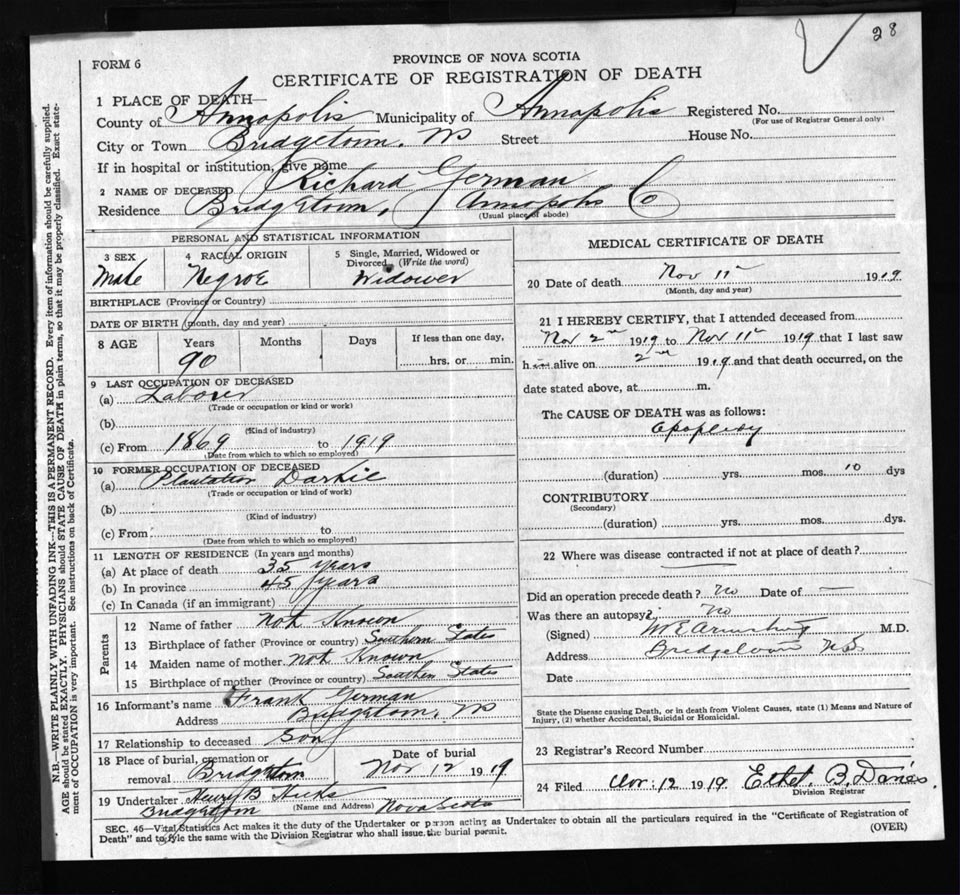 28
FORM 6
PROVINCE OF NOVA SCOTIA
CERTIFICATE OF REGISTRATION OF DEATH
1 PLACE OF DEATH—
County of Annapolis Municipality of Annapolis Registered No.
(For use of Registrar General only)
City or Town Bridgetown. NS Street House No.
If in hospital or institution, give name
2 NAME OF DECEASED Richard German
Residence Bridgetown, Annapolis Co
(Usual place of abode)
PERSONAL AND STATISTICAL INFORMATION
3 SEX Male
4 RACIAL ORIGIN Negroe
5 Single, Married, Widowed or Divorced (Write the word) Widower
BIRTHPLACE (Province or Country)
DATE OF BIRTH (month, day and year)
8 AGE Years 90 Months Days If less than one day, hrs. or min.
9 LAST OCCUPATION OF DECEASED
(a) Laborer
(Trade or occupation or kind or work)
(b)
(Kind of industry)
(c) From 1869 to 1919
(Date from which to which so employed)
10 FORMER OCCUPATION OF DECEASED
(a) Plantation Darkie
(Trade or occupation or kind of work)
(b)
(Kind of industry)
(c) From to
(Date from which to which so employed)
11 LENGTH OF RESIDENCE (In years and months)
(a) At place of death 35 years
(b) In province 45 years
(c) In Canada (if an immigrant)
Parents
12 Name of father not Known
13 Birthplace of father (Province or country) Southern States
14 Maiden name of mother not Known
15 Birthplace of mother (Province or country) Southern States
16 Informant's name Frank German
Address Bridgetown, NS
17 Relationship to deceased Son
18 Place of burial, cremation or removal Bridgetown Date of burial Nov 12 1919
19 Undertaker Henry B Hicks
Bridgetown (Name and Address) Nova Scotia
MEDICAL CERTIFICATE OF DEATH
20 Date of death Nov 11th 1919
(Month, day and year)
21 I HEREBY CERTIFY, that I attended deceased from
Nov 2nd 1919 to Nov 11th 1919 that I last saw
him alive on 2nd 1919 and that death occurred, on the
date stated above, at m.
The CAUSE OF DEATH was as follows:
(duration) yrs. mos. 10 dys
CONTRIBUTORY
(Secondary)
(duration) yrs. mos. dys.
22 Where was disease contracted if not at place of death?
Did an operation precede death? No Date of —
Was there an autopsy? No
(Signed) M.D.
Address Bridgetown N.S
Date
State the Disease causing Death, or in death from Violent Causes, state (1) Means and Nature of
Injury, (2) whether Accidental, Suicidal or Homicidal.
23 Registrar's Record Number
24 Filed Nov. 12 1919 Ethel. B. Davies
Division Registrar
SEC. 46—Vital Statistics Act makes it the duty of the Undertaker or person acting as Undertaker to obtain all the particulars required in the "Certificate of Registration of
Death" and to file the same with the Division Registrar who shall issue the burial permit.
(OVER)
N.B.—WRITE PLAINLY WITH UNFADING INK—THIS IS A PERMANENT RECORD. Every item of information should be carefully supplied.
AGE should be stated EXACTLY. PHYSICIANS should STATE CAUSE OF DEATH in plain terms, so that it may be properly classified. Exact state-
ment of OCCUPATION is very important. See instructions on back of Certificate.